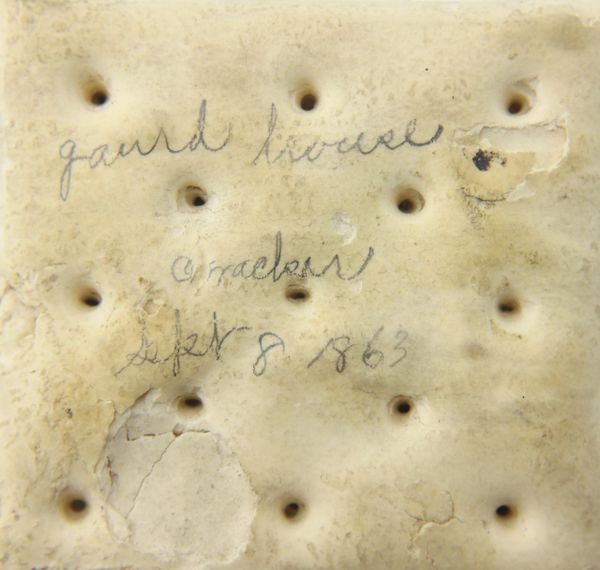 gaurd house
cracker
sept 8 1863